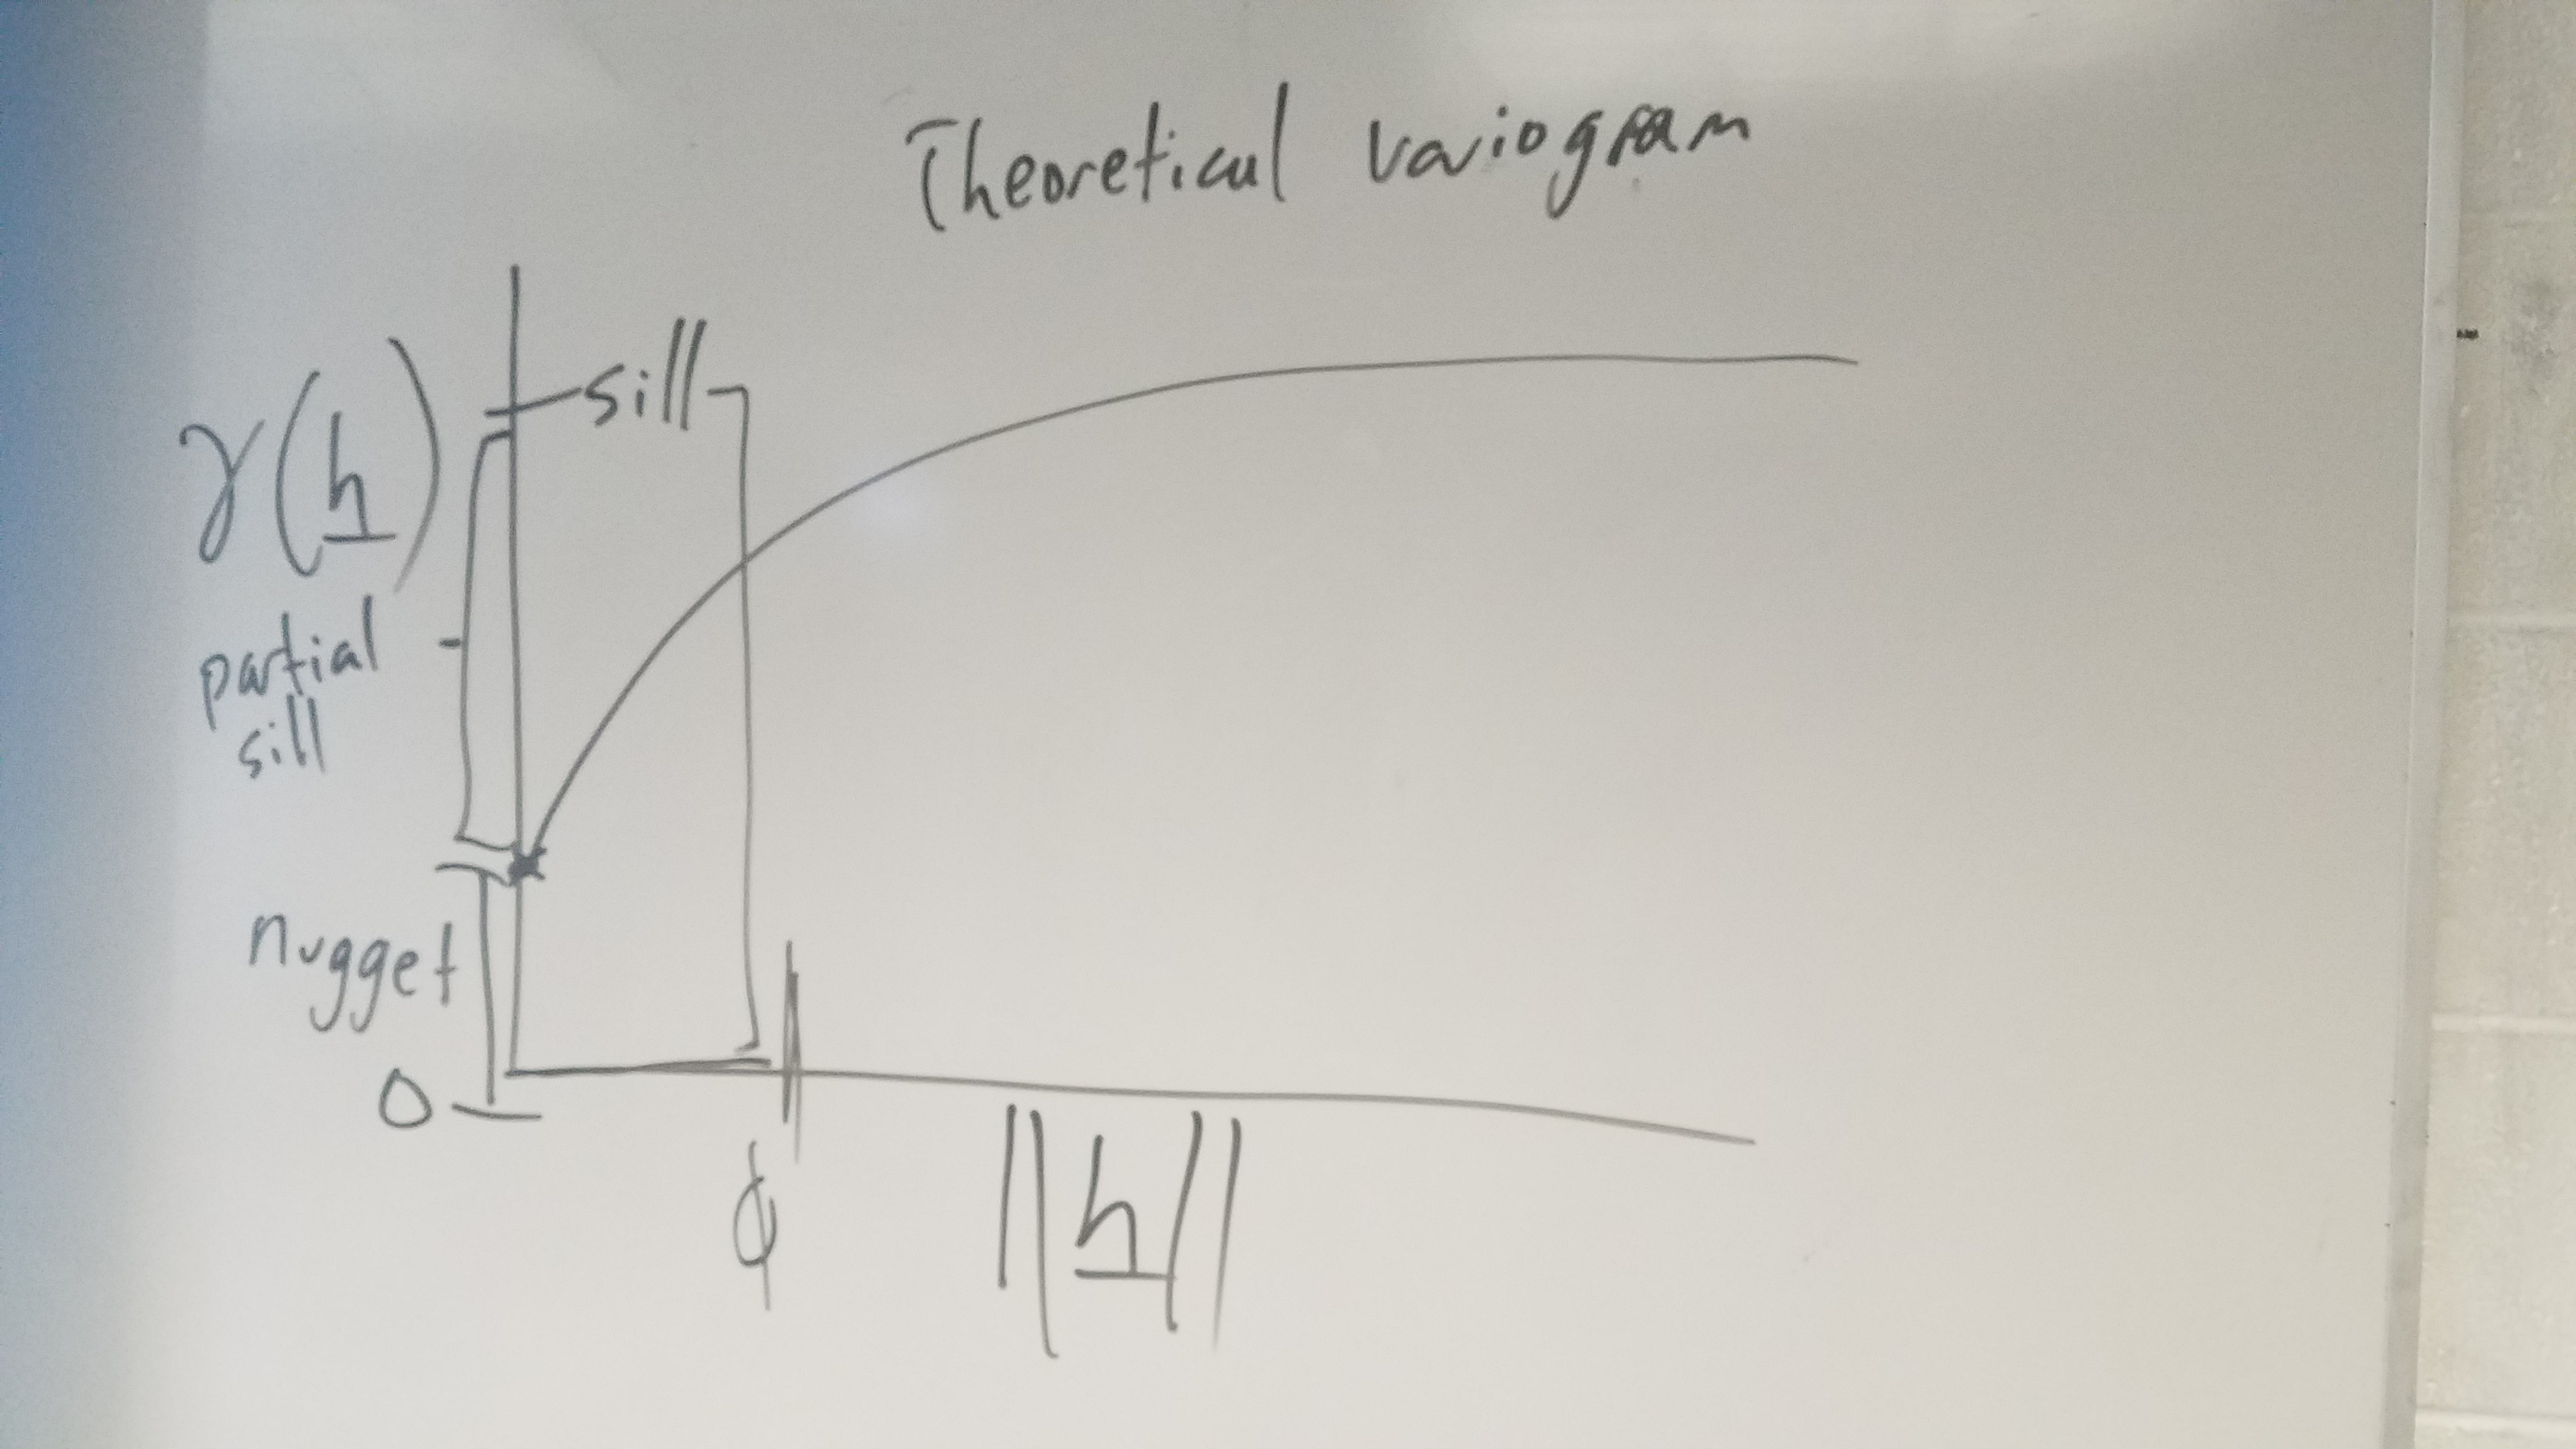 Theoretical variogram
sill
γ(h)
partial
sill
nugget
0
ϕ
||h||